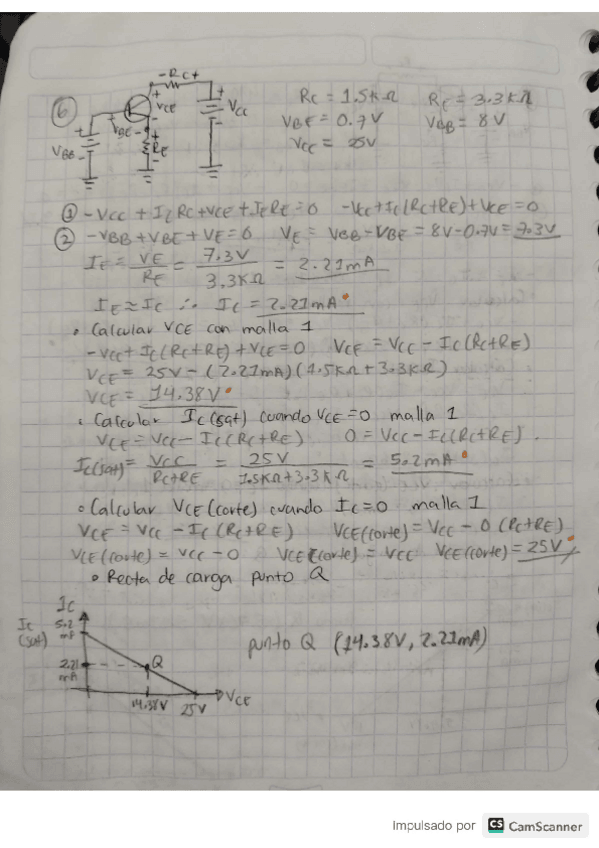 6
- Rc +
+
VCE
-
+
VBE -
+
VBB -
+
RE
-
+
VCC
-
Rc = 1.5kΩ RE = 3.3kΩ
VBE = 0.7V VBB = 8V
VCC = 25V
① -Vcc + IcRc + VCE + IcRE = 0 -Vcc + Ic(Rc+RE) + VCE = 0
② -VBB + VBE + VE = 0 VE = VBB - VBE = 8V - 0.7V = 7.3V
IE = VE/RE = 7.3V/3.3KΩ = 2.21mA
IE ≈ Ic ∴ Ic = 2.21mA
• Calcular VCE con malla 1
-Vcc + Ic(Rc+RE) + VCE = 0 VCE = Vcc - Ic(Rc+RE)
VCE = 25V - (2.21mA)(1.5KΩ + 3.3KΩ)
VCE = 14.38V
• Calcular Ic(sat) cuando VCE=0 malla 1
VCE = Vcc - Ic(Rc+RE) 0 = Vcc - Ic(Rc+RE).
Ic(sat) = Vcc/Rc+RE = 25V/1.5KΩ+3.3KΩ = 5.2mA
• Calcular VCE(corte) cuando Ic=0 malla 1
VCE = Vcc - Ic(Rc+RE) VCE(corte) = Vcc - 0(Rc+RE)
VCE(corte) = Vcc - 0 VCE(corte) = Vcc VCE(corte) = 25V
• Recta de carga punto Q
Ic
Ic (sat)
5.2 mA
punto Q (14.38V, 2.21mA)
Q
2.21 mA
VCE
14.38V 25V
Impulsado por CS CamScanner